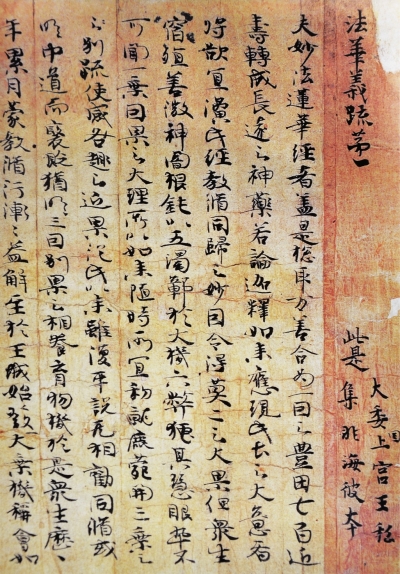 法華義疏第一
此是
大委国上宮王私
集非海彼本
夫妙法蓮華經者蓋是惣取万善合為一因之豊田七百近
壽轉成長遠之神藥若論迦釋如来應現此土之大意者
将欲宜演此經教脩同歸之妙因令得莫二之大果但衆生
宿殖善微神闇根鈍以五濁鄣於大機六弊掩其慧眼卒不
可聞一乗因果之大理所以如来随時所宜初就鹿苑開三乗之
別疏使感各趣之近果從此以来雖復平説无相勸同脩或
明中道而褒貶猶明三因別果之相養育物機於是衆生歴〻
年累月蒙教脩行漸〻益解至於王城始發大乗機稱會如